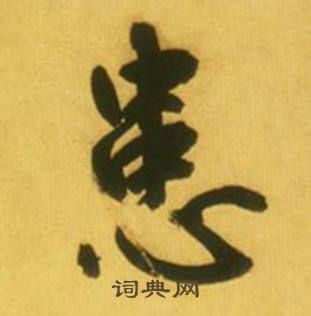 患
词典网